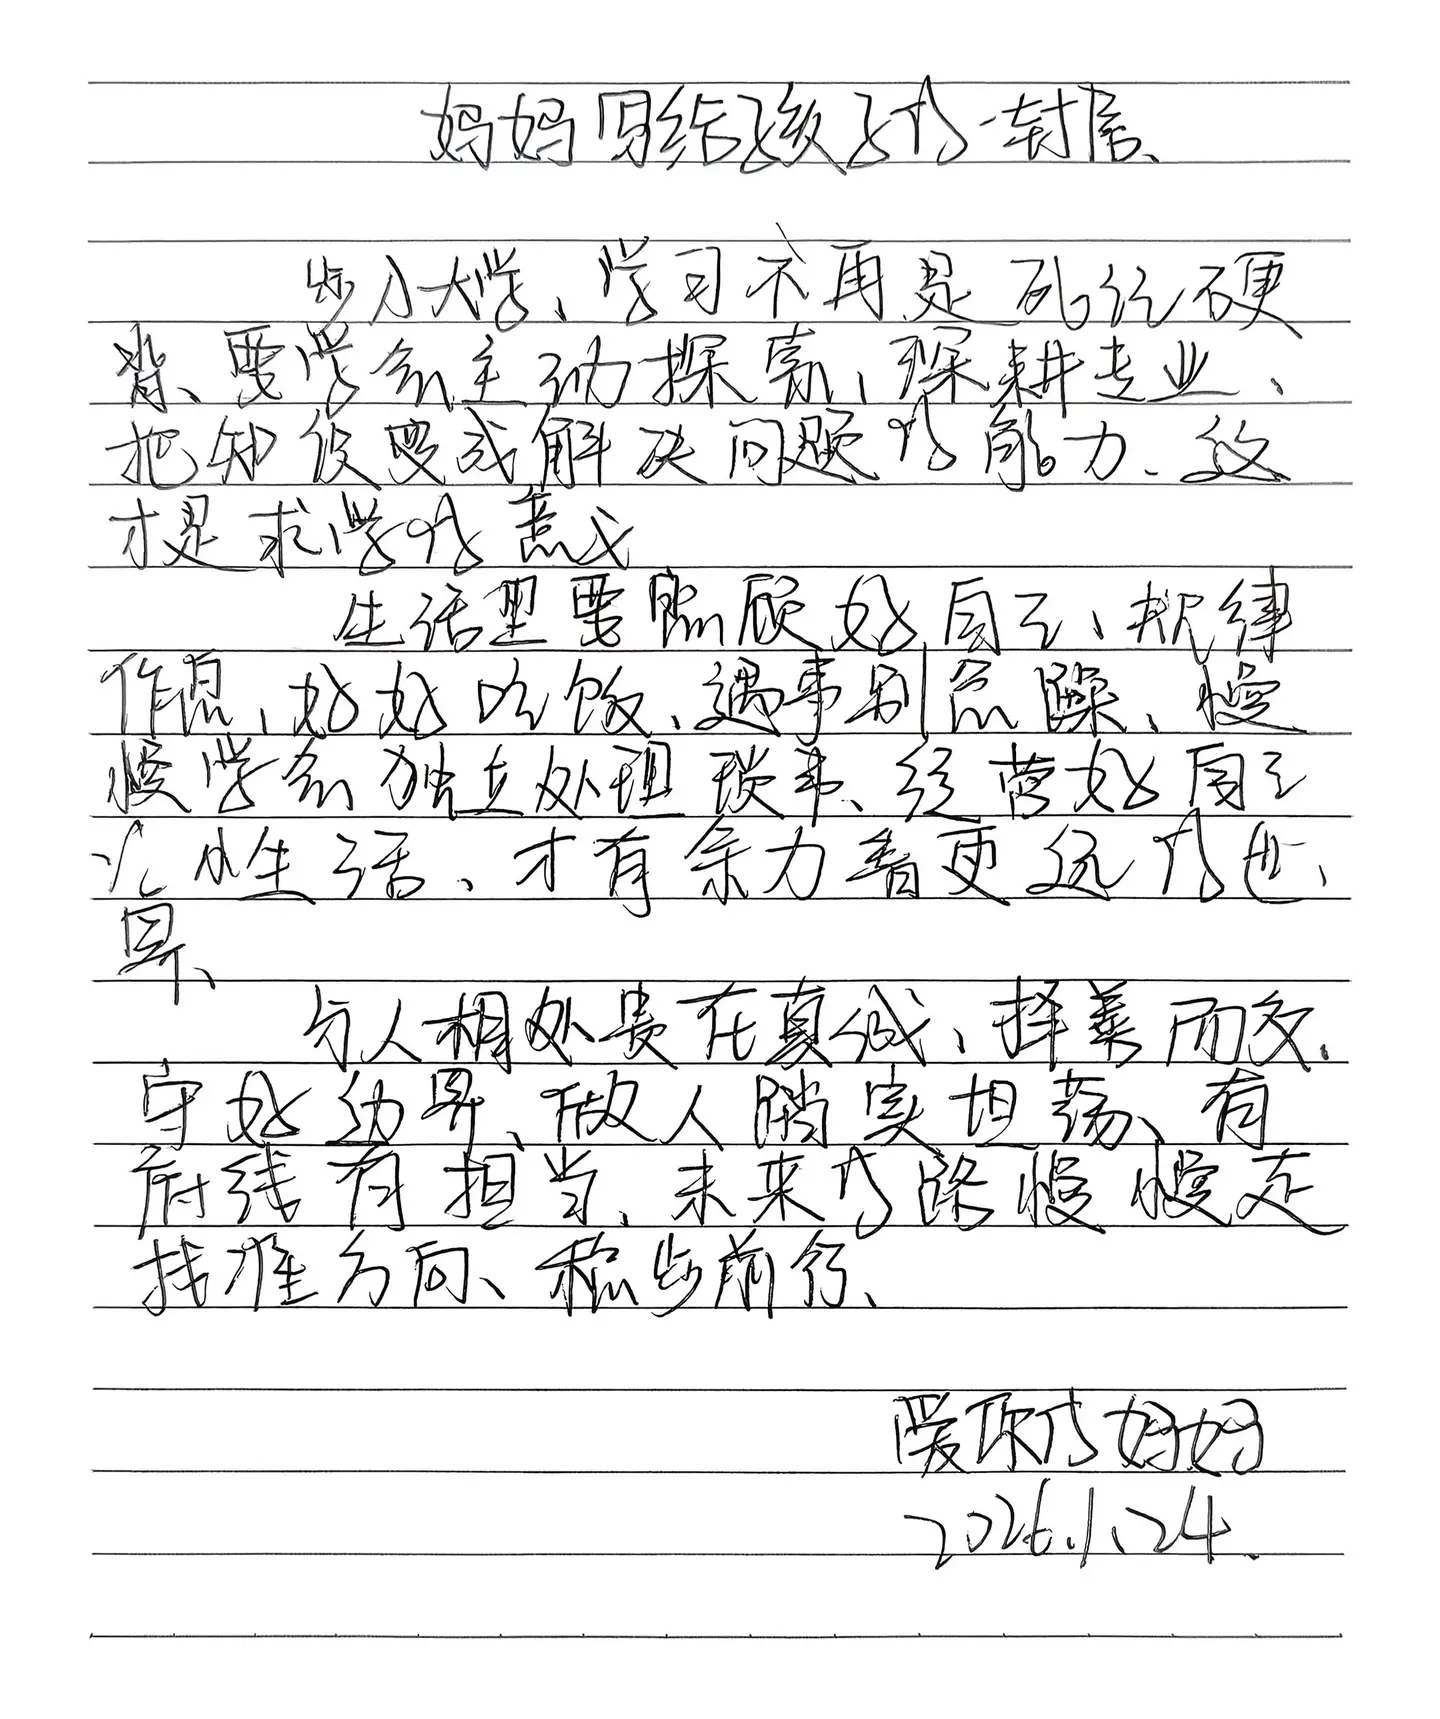 妈妈写给孩子的一封信、
步入大学、学习不再是死记硬
背、要学会主动探索、深耕专业、
把知识变成解决问题的能力、这
才是求学的意义
生活里要照顾好自己、规律
作息、好好吃饭、遇事别急躁、慢
慢学会独立处理琐事、经营好自己
的小生活、才有余力看更远的世、
界、
与人相处贵在真诚、择善而交、
守好边界、做人踏实坦荡、有
底线有担当、未来的路慢慢走
找准方向、稳步前行、
爱你的妈妈
2026.1.24.